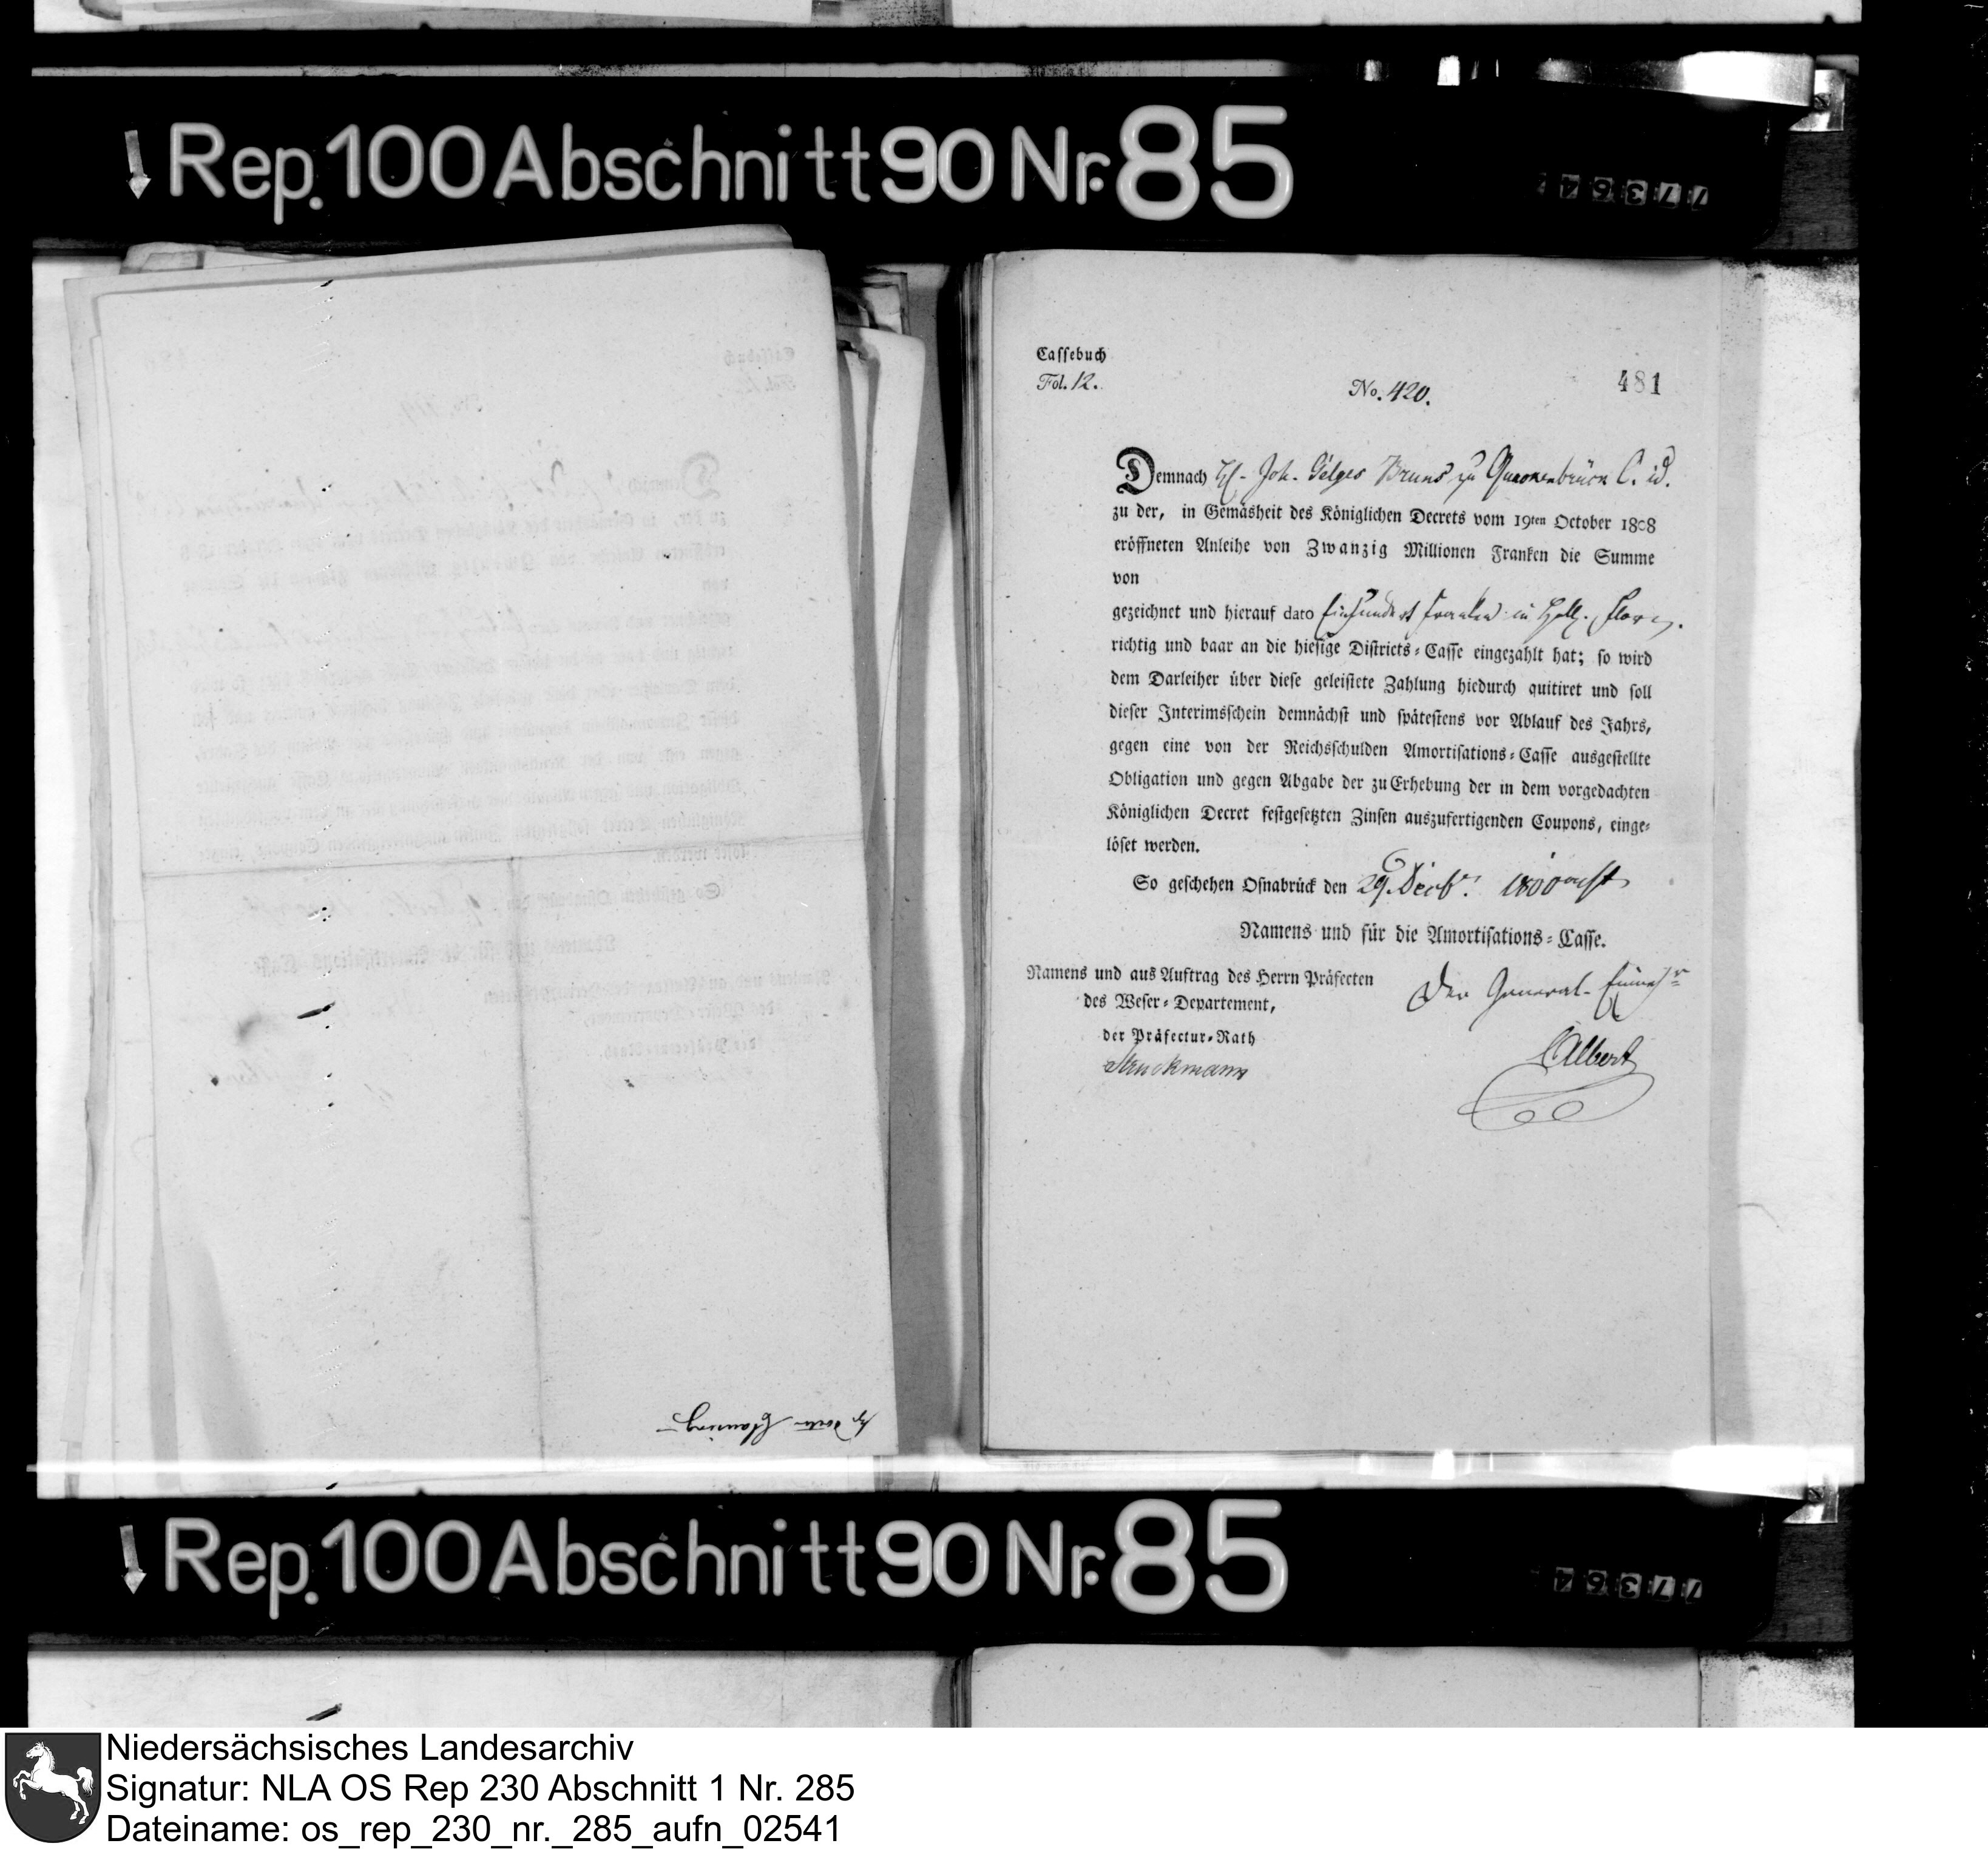 Rep. 100 Abschnitt 90 Nr. 85
Cassebuch
Fol. 12.
No. 420.
481
Demnach H. Joh. Gelges Bruns zu Quackenbrück C. W.
zu der, in Gemäsheit des Königlichen Decrets vom 19ten October 1808
eröffneten Anleihe von Zwanzig Millionen Franken die Summe
von
gezeichnet und hierauf dato Einhundert Franken in Holl. Floren.
richtig und baar an die hiesige Districts-Casse eingezahlt hat; so wird
dem Darleiher über diese geleistete Zahlung hiedurch quitiret und soll
dieser Interimsschein demnächst und spätestens vor Ablauf des Jahrs,
gegen eine von der Reichsschulden Amortisations-Casse ausgestellte
Obligation und gegen Abgabe der zu Erhebung der in dem vorgedachten
Königlichen Decret festgesetzten Zinsen auszufertigenden Coupons, einge-
löset werden.
So geschehen Osnabrück den 29. Decbr. 1800 acht
Namens und für die Amortisations-Casse.
Namens und aus Auftrag des Herrn Präfecten
des Weser-Departement,
der Präfectur-Rath
Struckmann
Der General-Einnehr
CAlbert
Rep. 100 Abschnitt 90 Nr. 85
Niedersächsisches Landesarchiv
Signatur: NLA OS Rep 230 Abschnitt 1 Nr. 285
Dateiname: os_rep_230_nr._285_aufn_02541